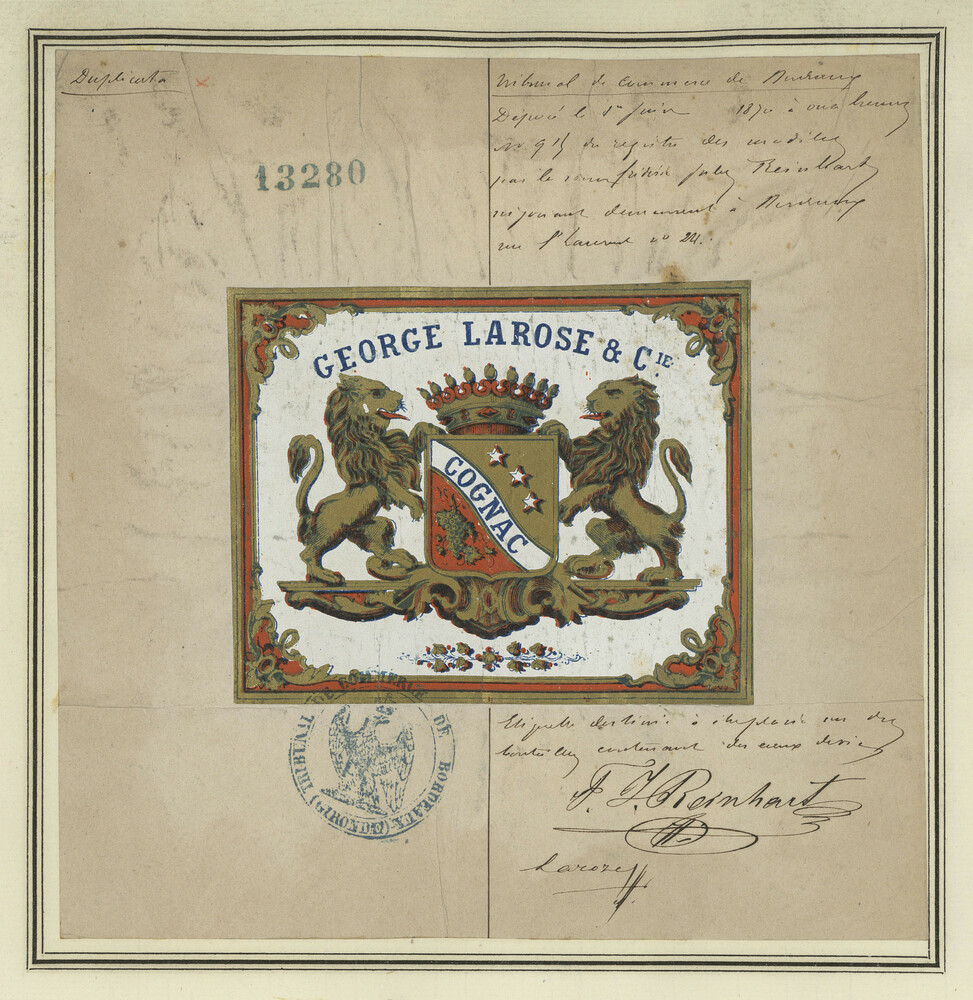 Duplicata
13280
Tribunal de Commerce de Bordeaux
Déposé le 1er Juin 1870 à onze heures
No 915 du registre des modèles
par le sieur frédéric Jules Reinhart
négociant demeurant à Bordeaux
rue St Laurent no 24.
GEORGE LAROSE & CIE.
COGNAC
TRIBUNAL DE COMMERCE DE BORDEAUX (GIRONDE)
Etiquette destinée à être placée sur des
bouteilles contenant des eaux de vie
F. J. Reinhart
Laroze